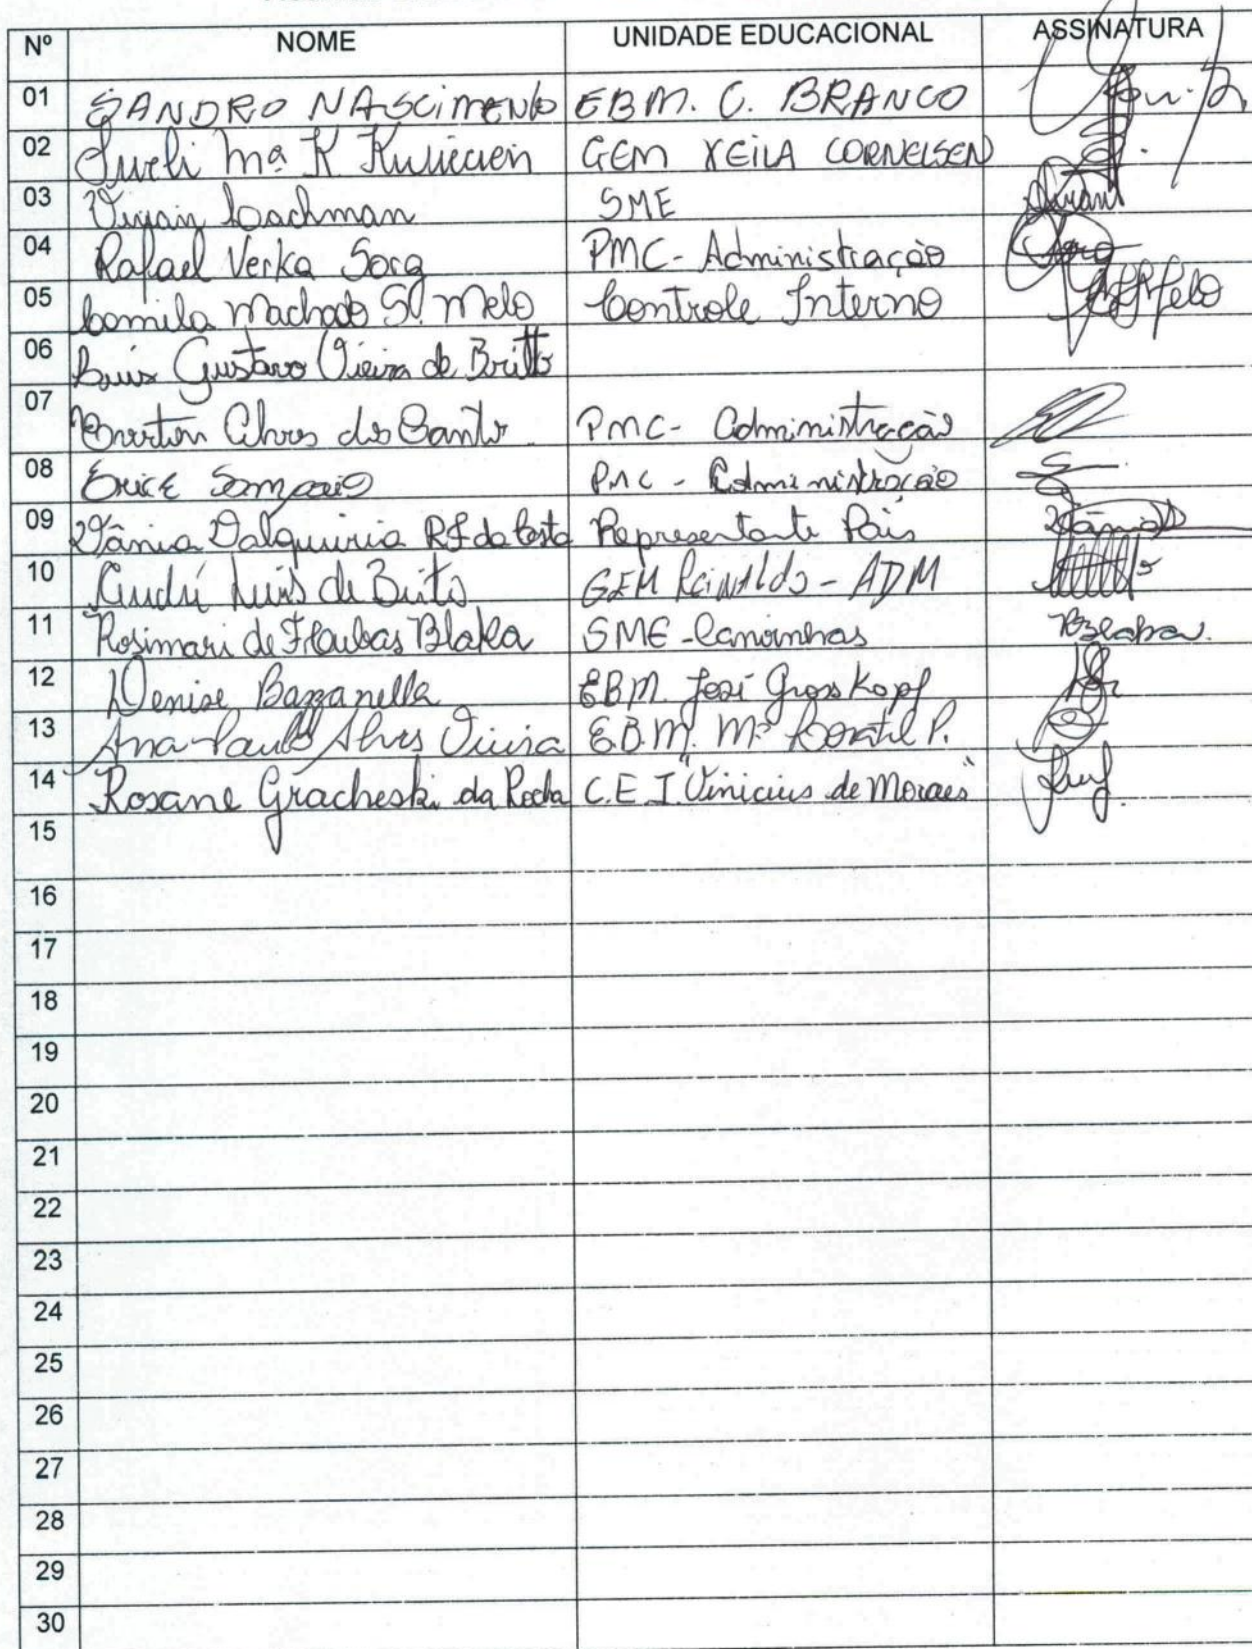 Nº NOME UNIDADE EDUCACIONAL ASSINATURA
01 SANDRO NASCIMENTO EBM. C. BRANCO
02 Sueli Mª K GEM XEILA CORNELSEN
03 Vivian Lachman SME Vivian
04 Rafael Verka Sorg PMC - Administração Sorg
05 Camila Machado S. Melo Controle Interno Melo
06 Luis Gustavo Vieira de Britto
07 Everton Alves dos Santos PMC - Administração
08 Erice Sampaio PMC - Administração
09 Vânia Valquiria RF da Costa Representante Pais Vânia
10 André Luis de Brito GEM Reinaldo - ADM
11 Rosimari de Blaka SME - Canoinhas Blaka
12 Denise Bazzanella EBM. José Grosskopf
13 Ana Paula Alves Vieira E.B.M. Mª P.
14 Rosane Gracheski da Rocha C.E.I. "Vinicius de Moraes"
15
16
17
18
19
20
21
22
23
24
25
26
27
28
29
30